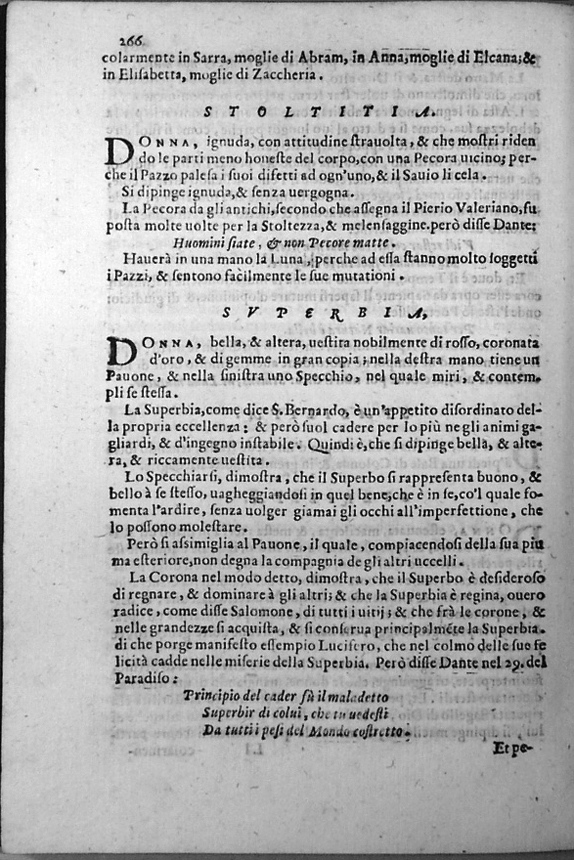 266
colarmente in Sarra, moglie di Abram, in Anna, moglie di Elcana; &
in Elisabetta, moglie di Zaccheria.
STOLTITIA.
DONNA, ignuda, con attitudine strauolta, & che mostri riden
do le parti meno honeste del corpo, con una Pecora uicino; per-
che il Pazzo palesa i suoi difetti ad ogn'uno, & il Sauio li cela.
Si dipinge ignuda, & senza uergogna.
La Pecora da gli antichi, secondo che assegna il Pierio Valeriano, fu
posta molte uolte per la Stoltezza, & melensaggine. però disse Dante:
Huomini siate, & non Pecore matte.
Hauerà in una mano la Luna, perche ad essa stanno molto soggetti
i Pazzi, & sentono facilmente le sue mutationi.
SVPERBIA,
DONNA, bella, & altera, uestita nobilmente di rosso, coronata
d'oro, & di gemme in gran copia; nella destra mano tiene un
Pauone, & nella sinistra uno Specchio, nel quale miri, & contem-
pli se stessa.
La Superbia, come dice S. Bernardo, è un'appetito disordinato del-
la propria eccellenza: & però suol cadere per lo più ne gli animi ga-
gliardi, & d'ingegno instabile. Quindi è, che si dipinge bella, & alte-
ra, & riccamente uestita.
Lo Specchiarsi, dimostra, che il Superbo si rappresenta buono, &
bello à se stesso, uagheggiandosi in quel bene, che è in se, co'l quale fo-
menta l'ardire, senza uolger giamai gli occhi all'imperfettione, che
lo possono molestare.
Però si assimiglia al Pauone, il quale, compiacendosi della sua piu
ma esteriore, non degna la compagnia de gli altri uccelli.
La Corona nel modo detto, dimostra, che il Superbo è desideroso
di regnare, & dominare à gli altri; & che la Superbia è regina, ouero
radice, come disse Salomone, di tutti i uitij; & che frà le corone, &
nelle grandezze si acquista, & si conserua principalmẽte la Superbia.
di che porge manifesto essempio Lucifero, che nel colmo delle sue fe
licità cadde nelle miserie della Superbia. Però disse Dante nel 29. del
Paradiso:
Principio del cader fù il maladetto
Superbir di colui, che tu uedesti
Da tutti i pesi del Mondo costretto.
Et pe-